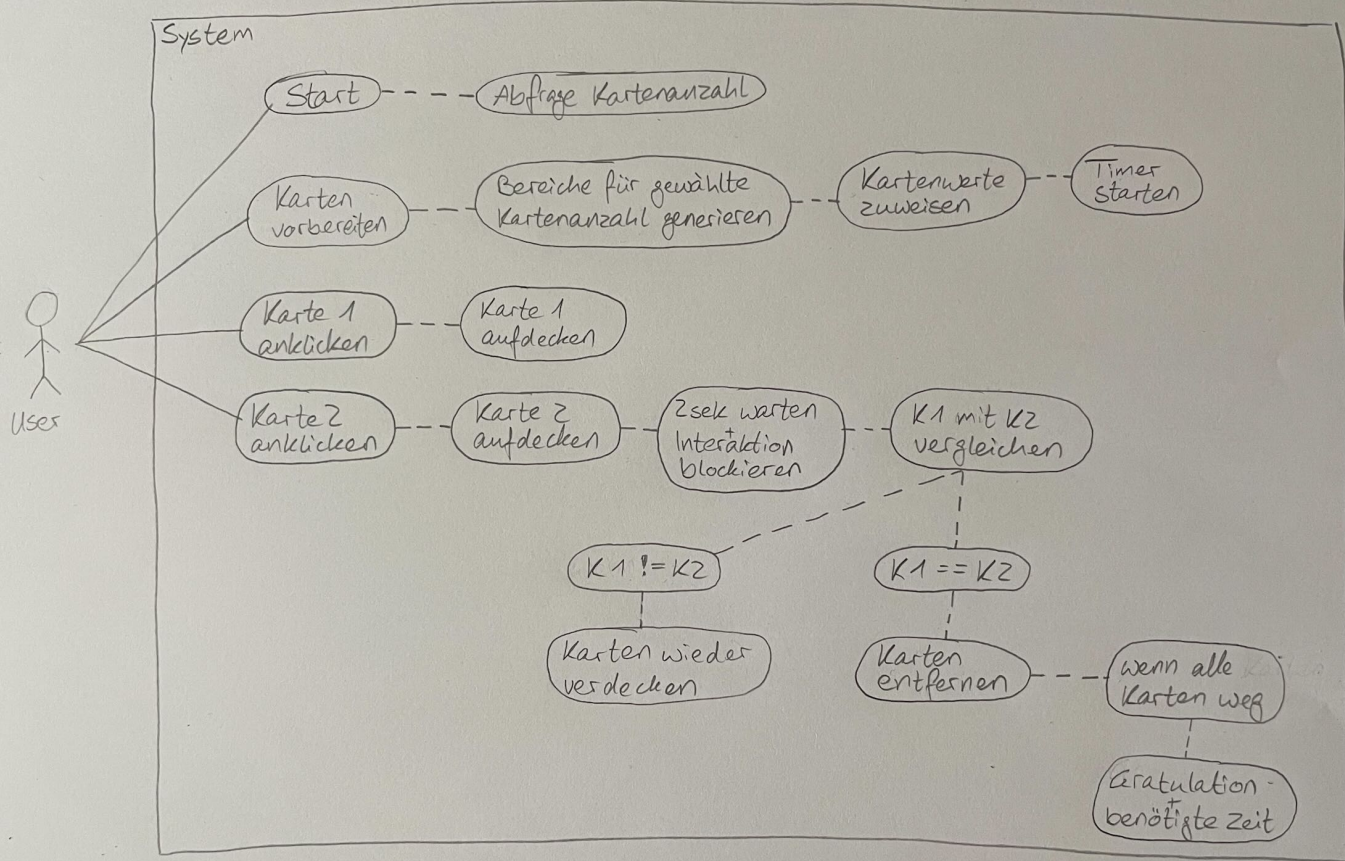 System
Start
Abfrage Kartenanzahl
Karten
vorbereiten
Bereiche für gewählte
Kartenanzahl generieren
Kartenwerte
zuweisen
Timer
starten
Karte 1
anklicken
Karte 1
aufdecken
User
Karte 2
anklicken
Karte 2
aufdecken
2sek warten
+
Interaktion
blockieren
K1 mit K2
vergleichen
K1 != K2
K1 == K2
Karten wieder
verdecken
Karten
entfernen
wenn alle
Karten weg
Gratulation
+
benötigte Zeit